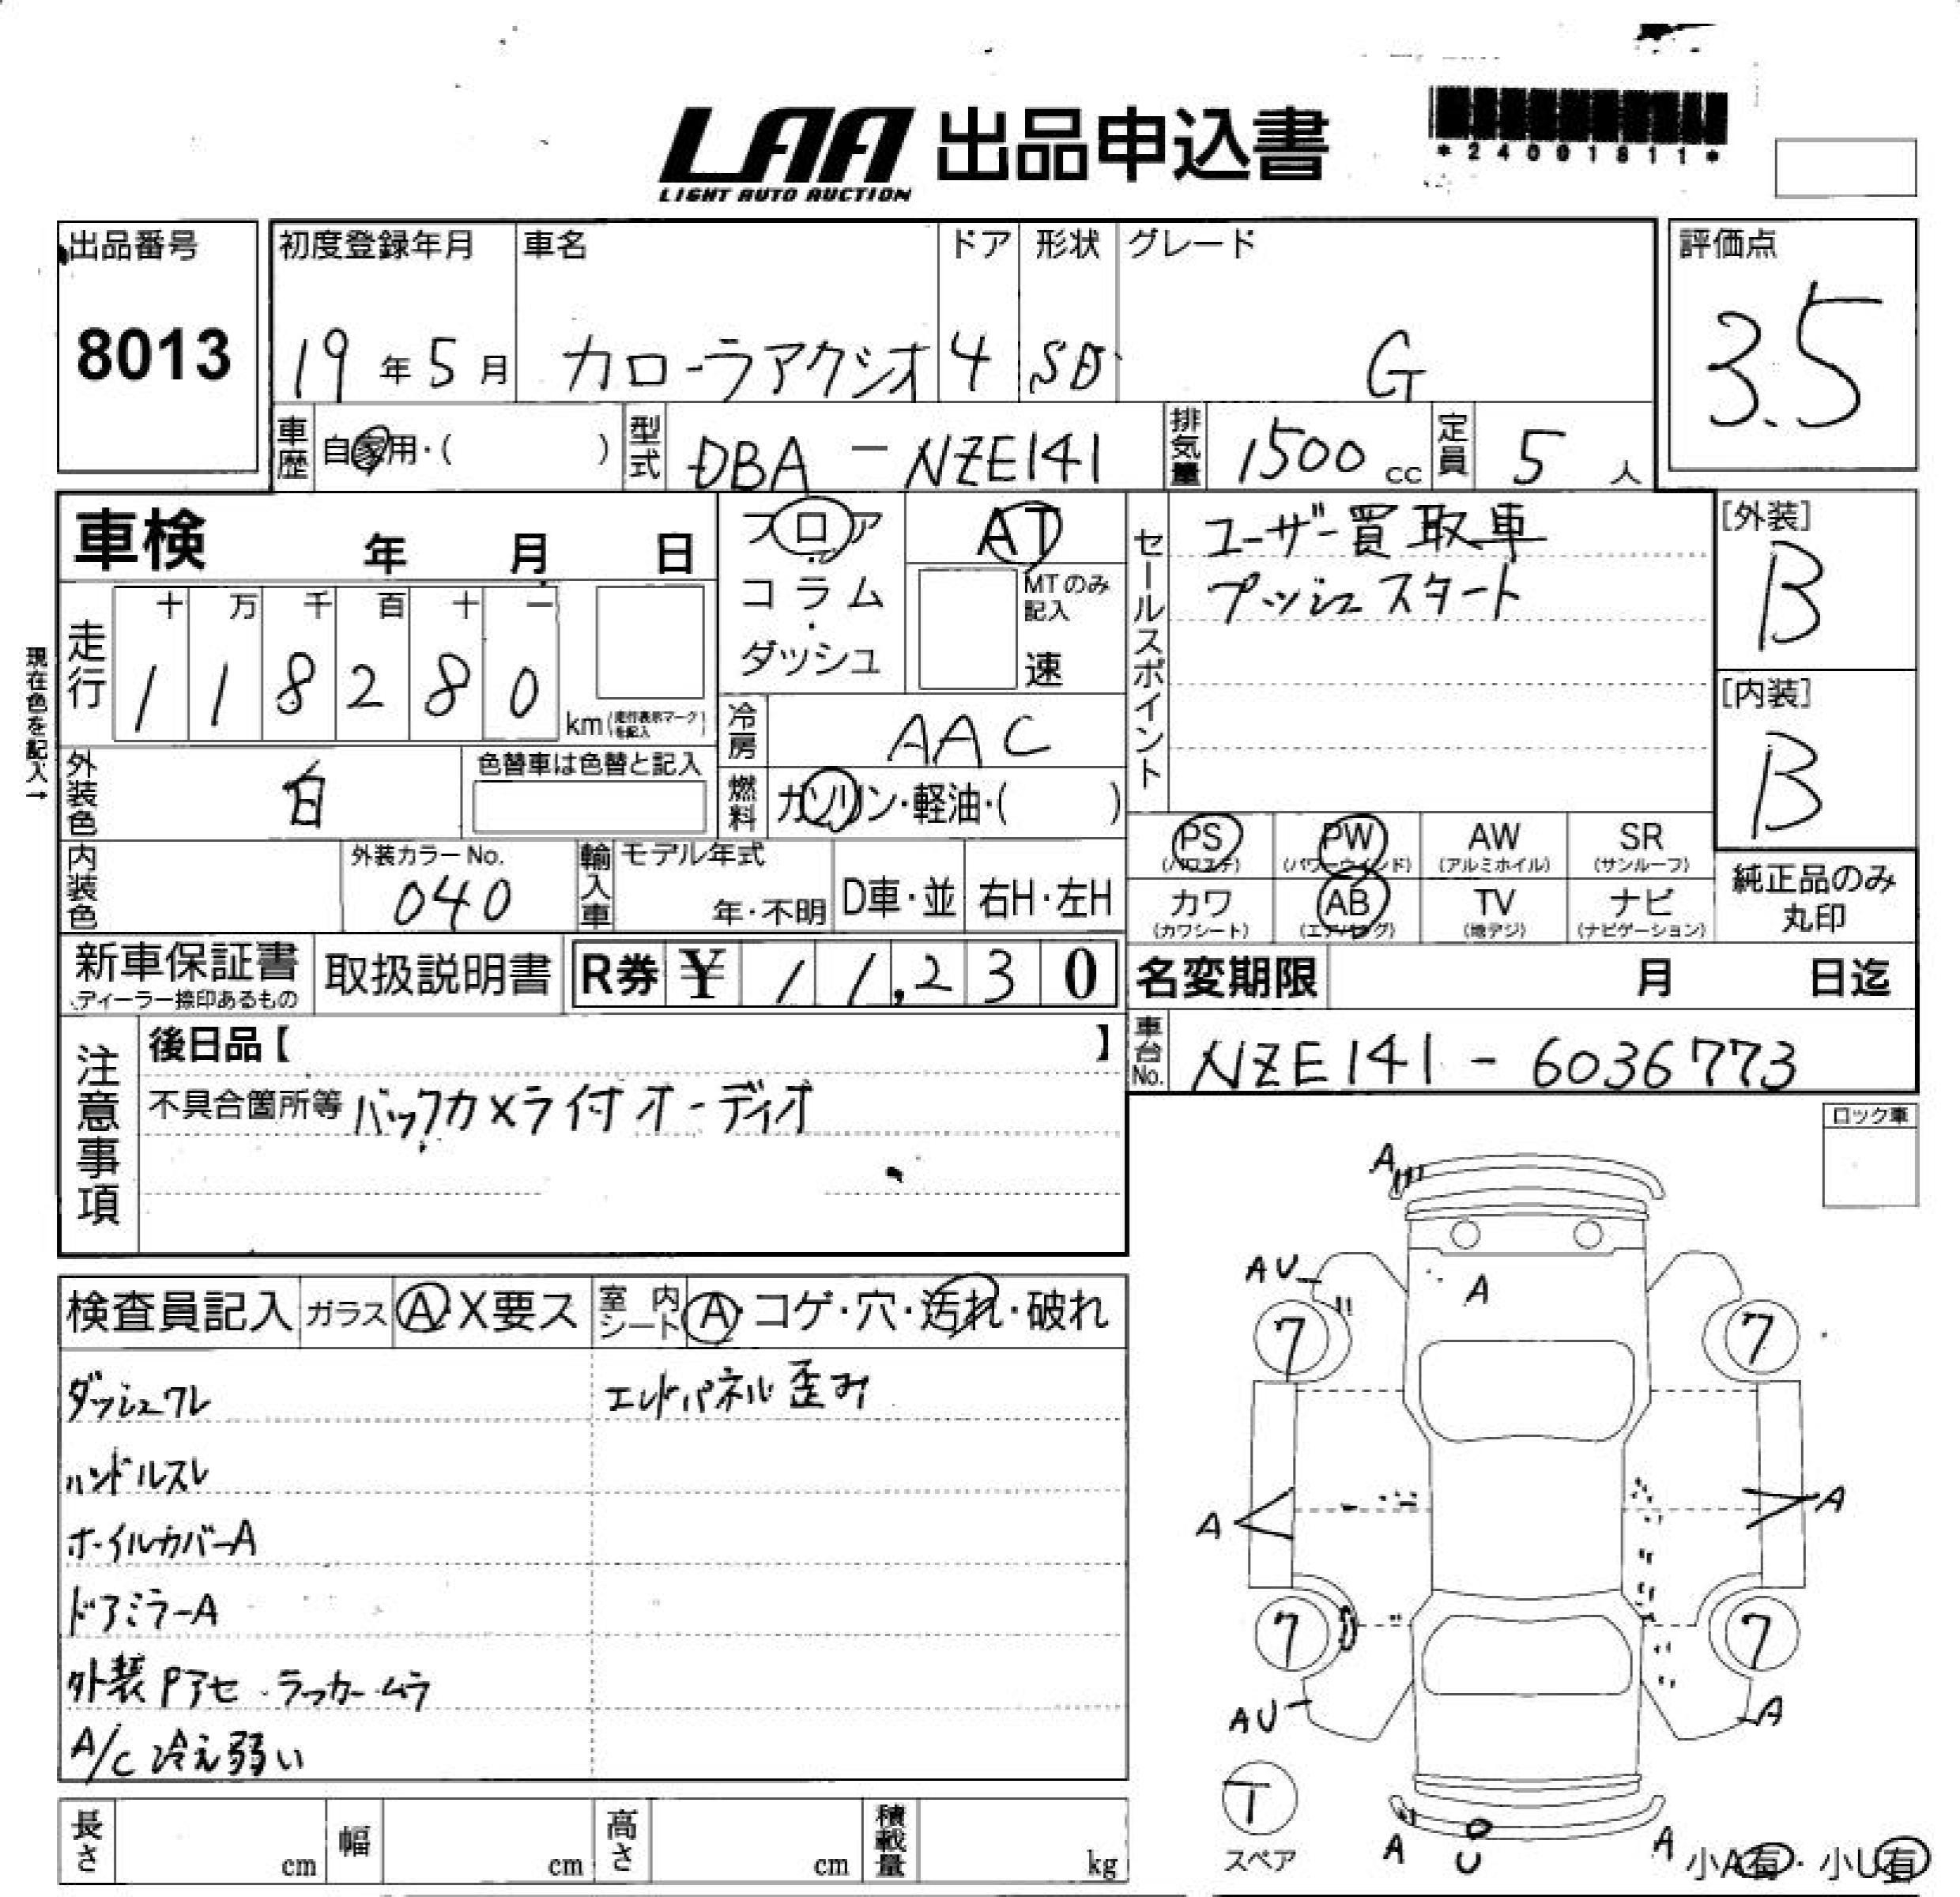 LAA 出品申込書
LIGHT AUTO AUCTION
*24091811*
出品番号
8013
初度登録年月
19年5月
車名
カローラアクシオ
ドア
4
形状
SD
グレード
G
評価点
3.5
車歴 自家用・( )
型式 DBA - NZE141
排気量 1500 cc
定員 5 人
車検 年 月 日
フロア
コラム
・
ダッシュ
AT
MTのみ記入
速
セールスポイント
ユーザー買取車
プッシュスタート
[外装]
B
[内装]
B
現在色を記入→
走行
十 万 千 百 十 一
1 1 8 2 8 0 km (走行表示マークを記入)
冷房 AAC
外装色 白
色替車は色替と記入
燃料 ガソリン・軽油・( )
PS (パワステ)
PW (パワーウインド)
AW (アルミホイル)
SR (サンルーフ)
カワ (カワシート)
AB (エアバッグ)
TV (地デジ)
ナビ (ナビゲーション)
純正品のみ
丸印
内装色
外装カラーNo.
040
輸入車
モデル年式
年・不明
D車・並
右H・左H
新車保証書
ディーラー捺印あるもの
取扱説明書
R券 ¥ 11,230
名変期限 月 日迄
車台No. NZE141 - 6036773
注意事項
後日品【 】
不具合箇所等 バックカメラ付オーディオ
ロック車
検査員記入 ガラス A X要ス
室内シート A・コゲ・穴・汚れ・破れ
ダッシュワレ
エンドパネル歪み
ハンドルスレ
ホイルカバーA
ドアミラーA
外装Pアセ・ラッカームラ
A/C冷え弱い
A
AU
A
7
7
A
A
7
7
AU
A
T
スペア
A
U
A
小A有・小U有
長さ cm
幅 cm
高さ cm
積載量 kg